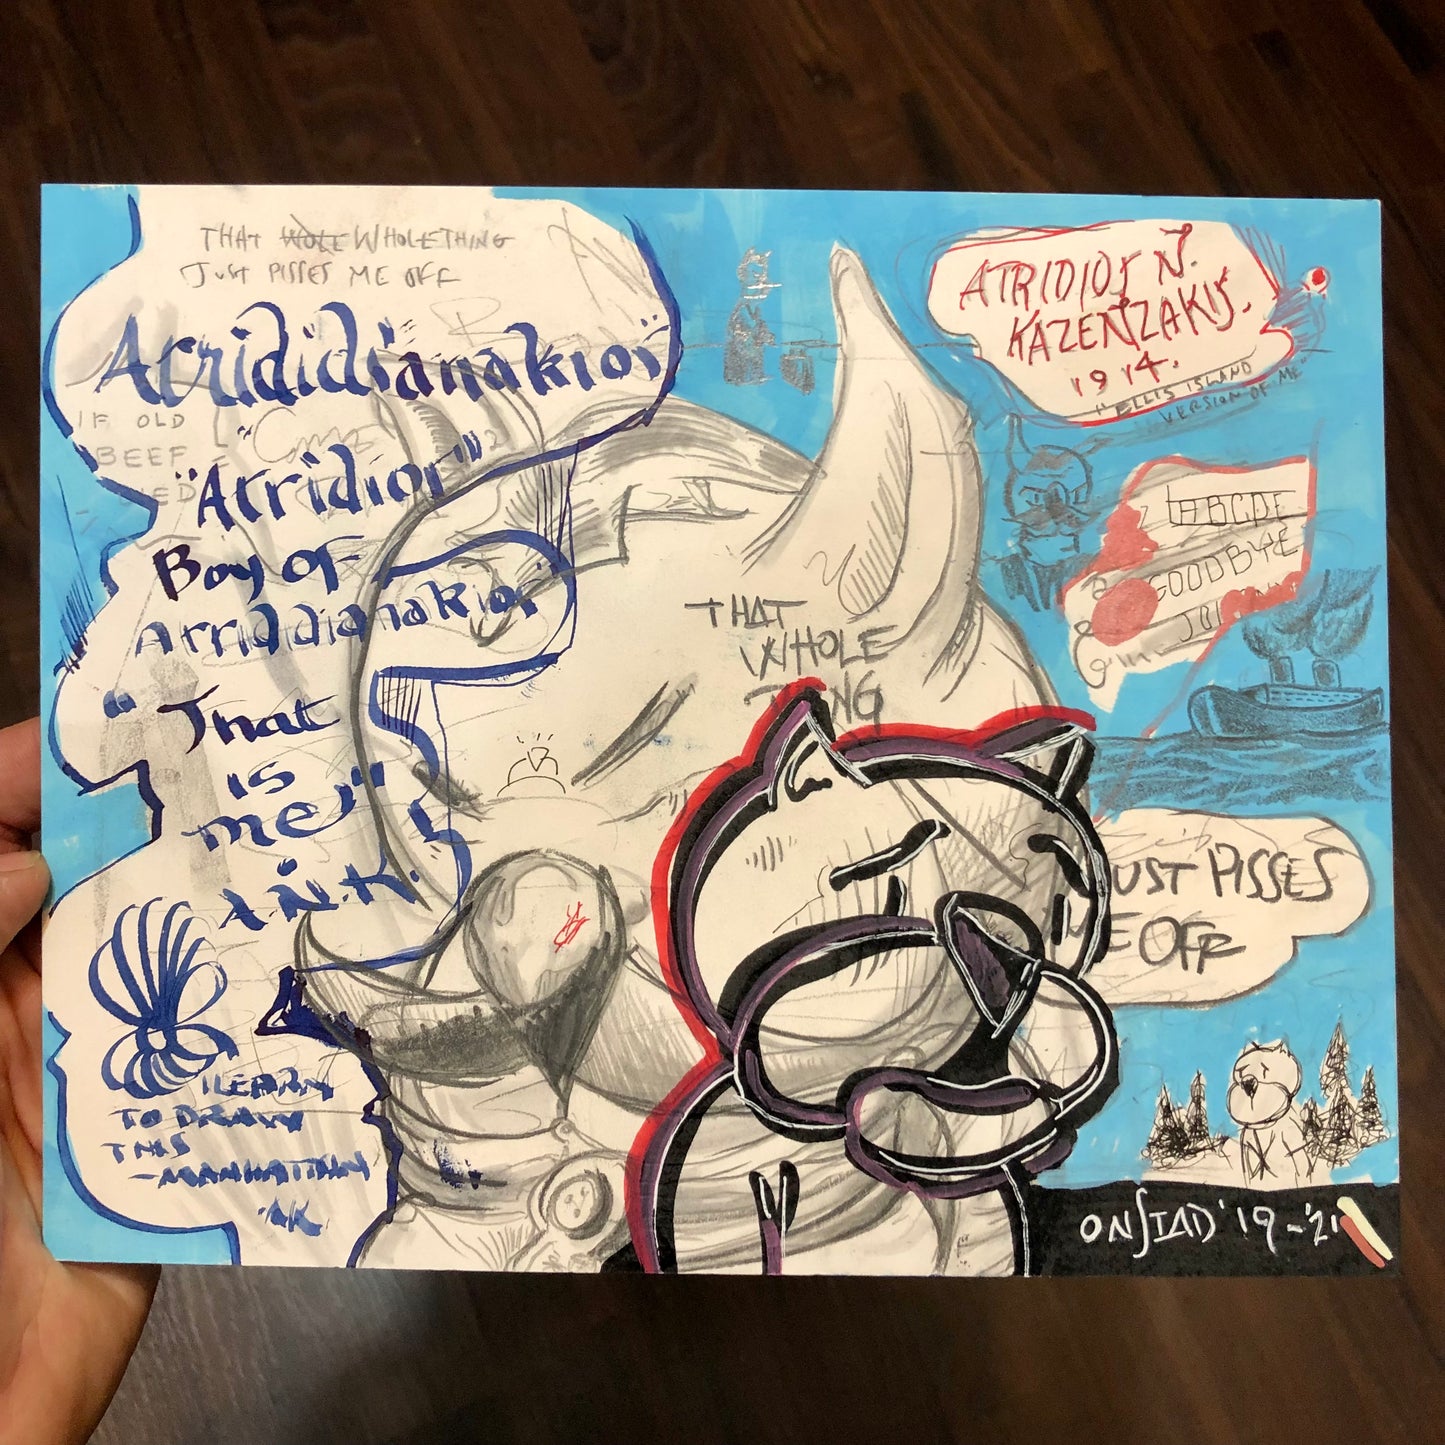 THAT WOLE WHOLE THING
JUST PISSES ME OFF
Atrididianakioi
IF OLD
BEEF
"Atridioi"
Boy of
Atrididianakioi
"That
is
me,"
A.N.K.
I LEARN
TO DRAW
THIS
-MANHATTAN
AK
THAT
WHOLE
ATRIDIOS N.
KAZENTZAKIS.
1914.
"ELLIS ISLAND
VERSION OF ME"
ABCDE
GOODBYE
UST PISSES
E OFF
ONSIAD '19-'21